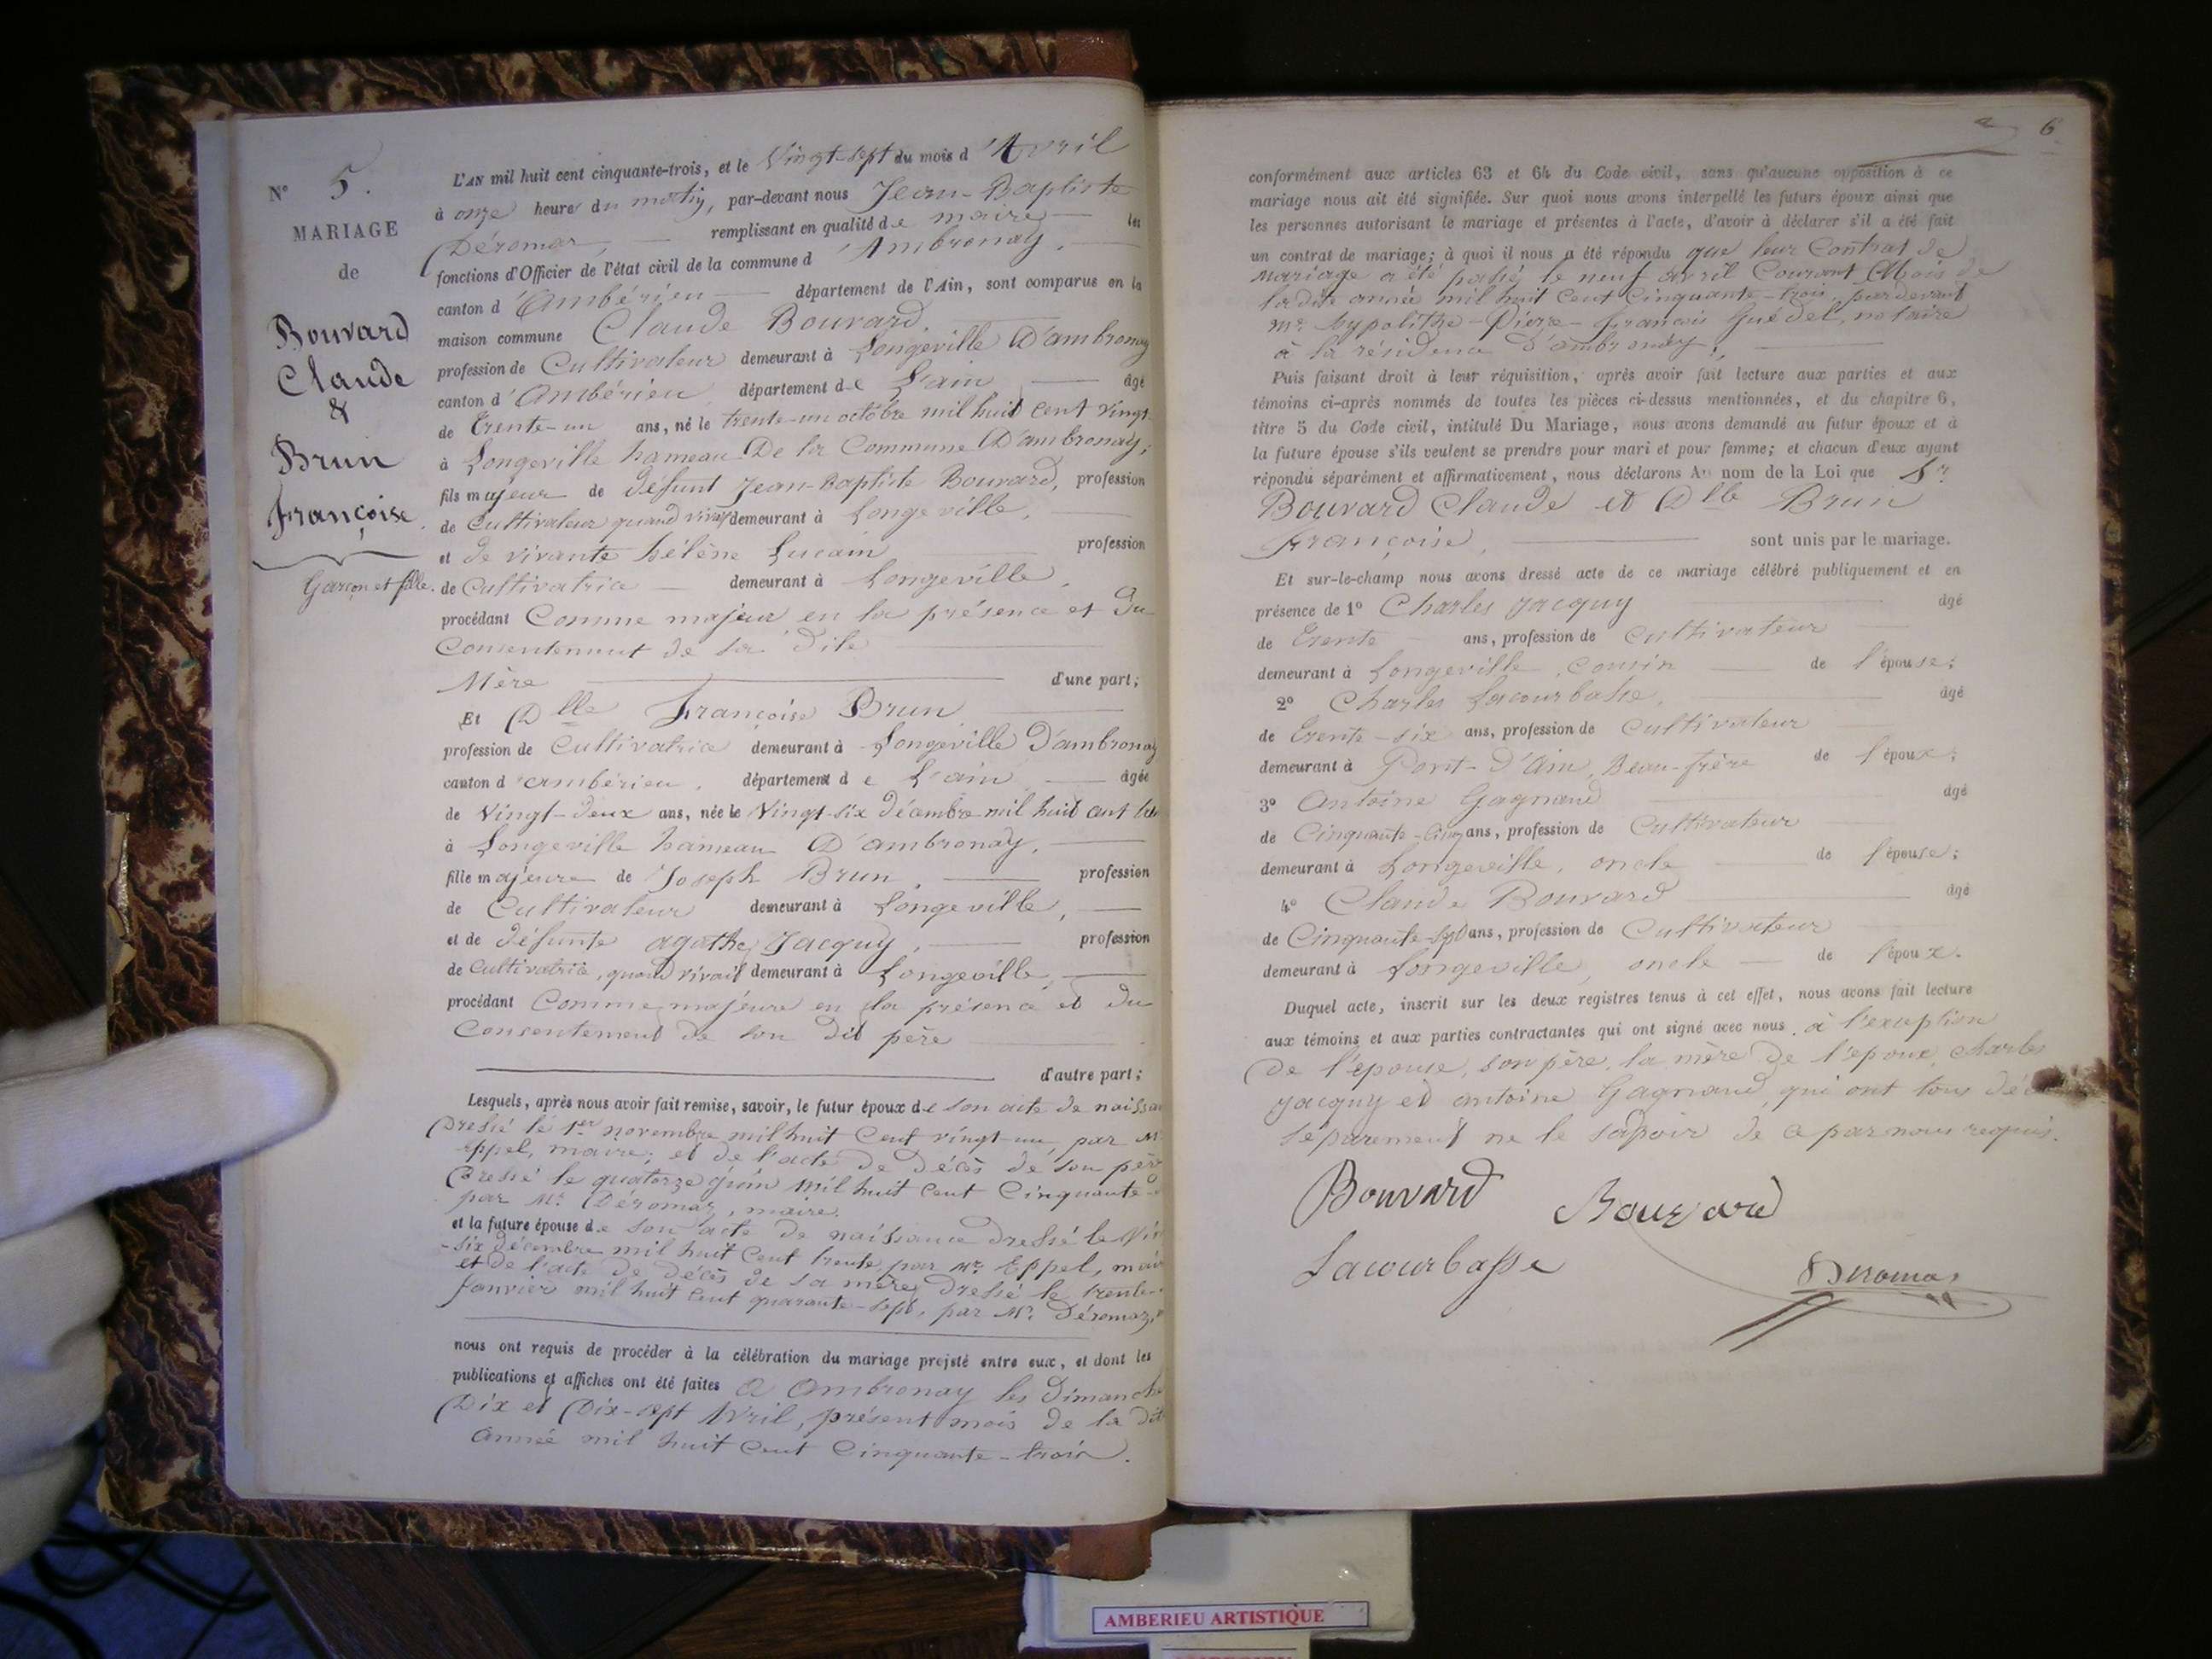 N° 5.
MARIAGE
de
Bouvard
Claude
&
Brun
Françoise.
Garçon et fille.
L'AN mil huit cent cinquante-trois, et le Vingt-sept du mois d'Avril
à onze heures du matin, par-devant nous Jean-Baptiste
Déromas, remplissant en qualité de maire les
fonctions d'Officier de l'état civil de la commune d'Ambronay,
canton d'Ambérieu département de l'Ain, sont comparus en la
maison commune Claude Bouvard,
profession de Cultivateur demeurant à Longeville D'ambronay
canton d'Ambérieu, département de L'ain âgé
de Trente-un ans, né le trente-un octobre mil huit cent vingt-
à Longeville hameau De la Commune D'ambronay;
fils majeur de défunt Jean-Baptiste Bouvard, profession
de Cultivateur quand vivait demeurant à Longeville,
et de vivante hélène Lucain profession
de Cultivatrice demeurant à Longeville,
procédant Comme majeur en la présence et du
Consentement de sa dite
Mère d'une part;
Et Dlle Françoise Brun
profession de Cultivatrice demeurant à Longeville D'ambronay
canton d'ambérieu, département de L'ain âgée
de Vingt-deux ans, née le Vingt-six décembre mil huit cent
à Longeville hameau D'ambronay,
fille majeure de Joseph Brun, profession
de Cultivateur demeurant à Longeville,
et de défunte agathe Jacquy, profession
de Cultivatrice, quand vivait demeurant à Longeville,
procédant Comme majeure en la présence et du
Consentement de son dit père
d'autre part;
Lesquels, après nous avoir fait remise, savoir, le futur époux de son acte de naissan
Dressé le 1er novembre mil huit Cent vingt-un, par Mr
Eppel, maire; et de l'acte de décès de son père
Dressé le quatorze juin mil huit Cent Cinquante-
par Mr. Déromas, maire.
et la future épouse de son acte de naissance dressé le Vin
-six décembre mil huit Cent trente, par Mr. Eppel, mair
et de l'acte de décès de sa mère, Dressé le trente-
Janvier mil huit Cent quarante-sept, par Mr. Déromas,
nous ont requis de procéder à la célébration du mariage projeté entre eux, et dont les
publications et affiches ont été faites à Ambronay les Dimanche
Dix et Dix-sept Avril, présent mois de la dite
année mil huit Cent Cinquante-trois.
6
conformément aux articles 63 et 64 du Code civil, sans qu'aucune opposition à ce
mariage nous ait été signifiée. Sur quoi nous avons interpellé les futurs époux ainsi que
les personnes autorisant le mariage et présentes à l'acte, d'avoir à déclarer s'il a été fait
un contrat de mariage; à quoi il nous a été répondu que leur Contrat de
mariage a été passé le neuf avril Courant Mois de
la dite année mil huit Cent Cinquante-trois, pardevant
Mr. hypolithe-Pierre-françois Guédel, notaire
à la résidence D'ambronay;
Puis faisant droit à leur réquisition, après avoir fait lecture aux parties et aux
témoins ci-après nommés de toutes les pièces ci-dessus mentionnées, et du chapitre 6,
titre 5 du Code civil, intitulé Du Mariage, nous avons demandé au futur époux et à
la future épouse s'ils veulent se prendre pour mari et pour femme; et chacun d'eux ayant
répondu séparément et affirmativement, nous déclarons Au nom de la Loi que Sr.
Bouvard Claude et Dlle Brun
Françoise, sont unis par le mariage.
Et sur-le-champ nous avons dressé acte de ce mariage célébré publiquement et en
présence de 1° Charles Jacquy âgé
de Trente ans, profession de Cultivateur
demeurant à Longeville, cousin de l'épouse;
2° Charles Lacourbasse, âgé
de Trente-six ans, profession de Cultivateur
demeurant à Pont-D'Ain, Beau-frère de l'époux;
3° Antoine Gagnaud âgé
de Cinquante-Cinq ans, profession de Cultivateur
demeurant à Longeville, oncle de l'épouse;
4° Claude Bouvard âgé
de Cinquante-sept ans, profession de Cultivateur
demeurant à Longeville, oncle de l'époux.
Duquel acte, inscrit sur les deux registres tenus à cet effet, nous avons fait lecture
aux témoins et aux parties contractantes qui ont signé avec nous, à l'exception
De l'épouse, son père, la mère de l'époux, charles
Jacquy et antoine Gagnaud, qui ont tous
séparement ne le savoir de ce par nous requis.
Bouvard Bouvard
Lacourbasse
Deromas
AMBERIEU ARTISTIQUE